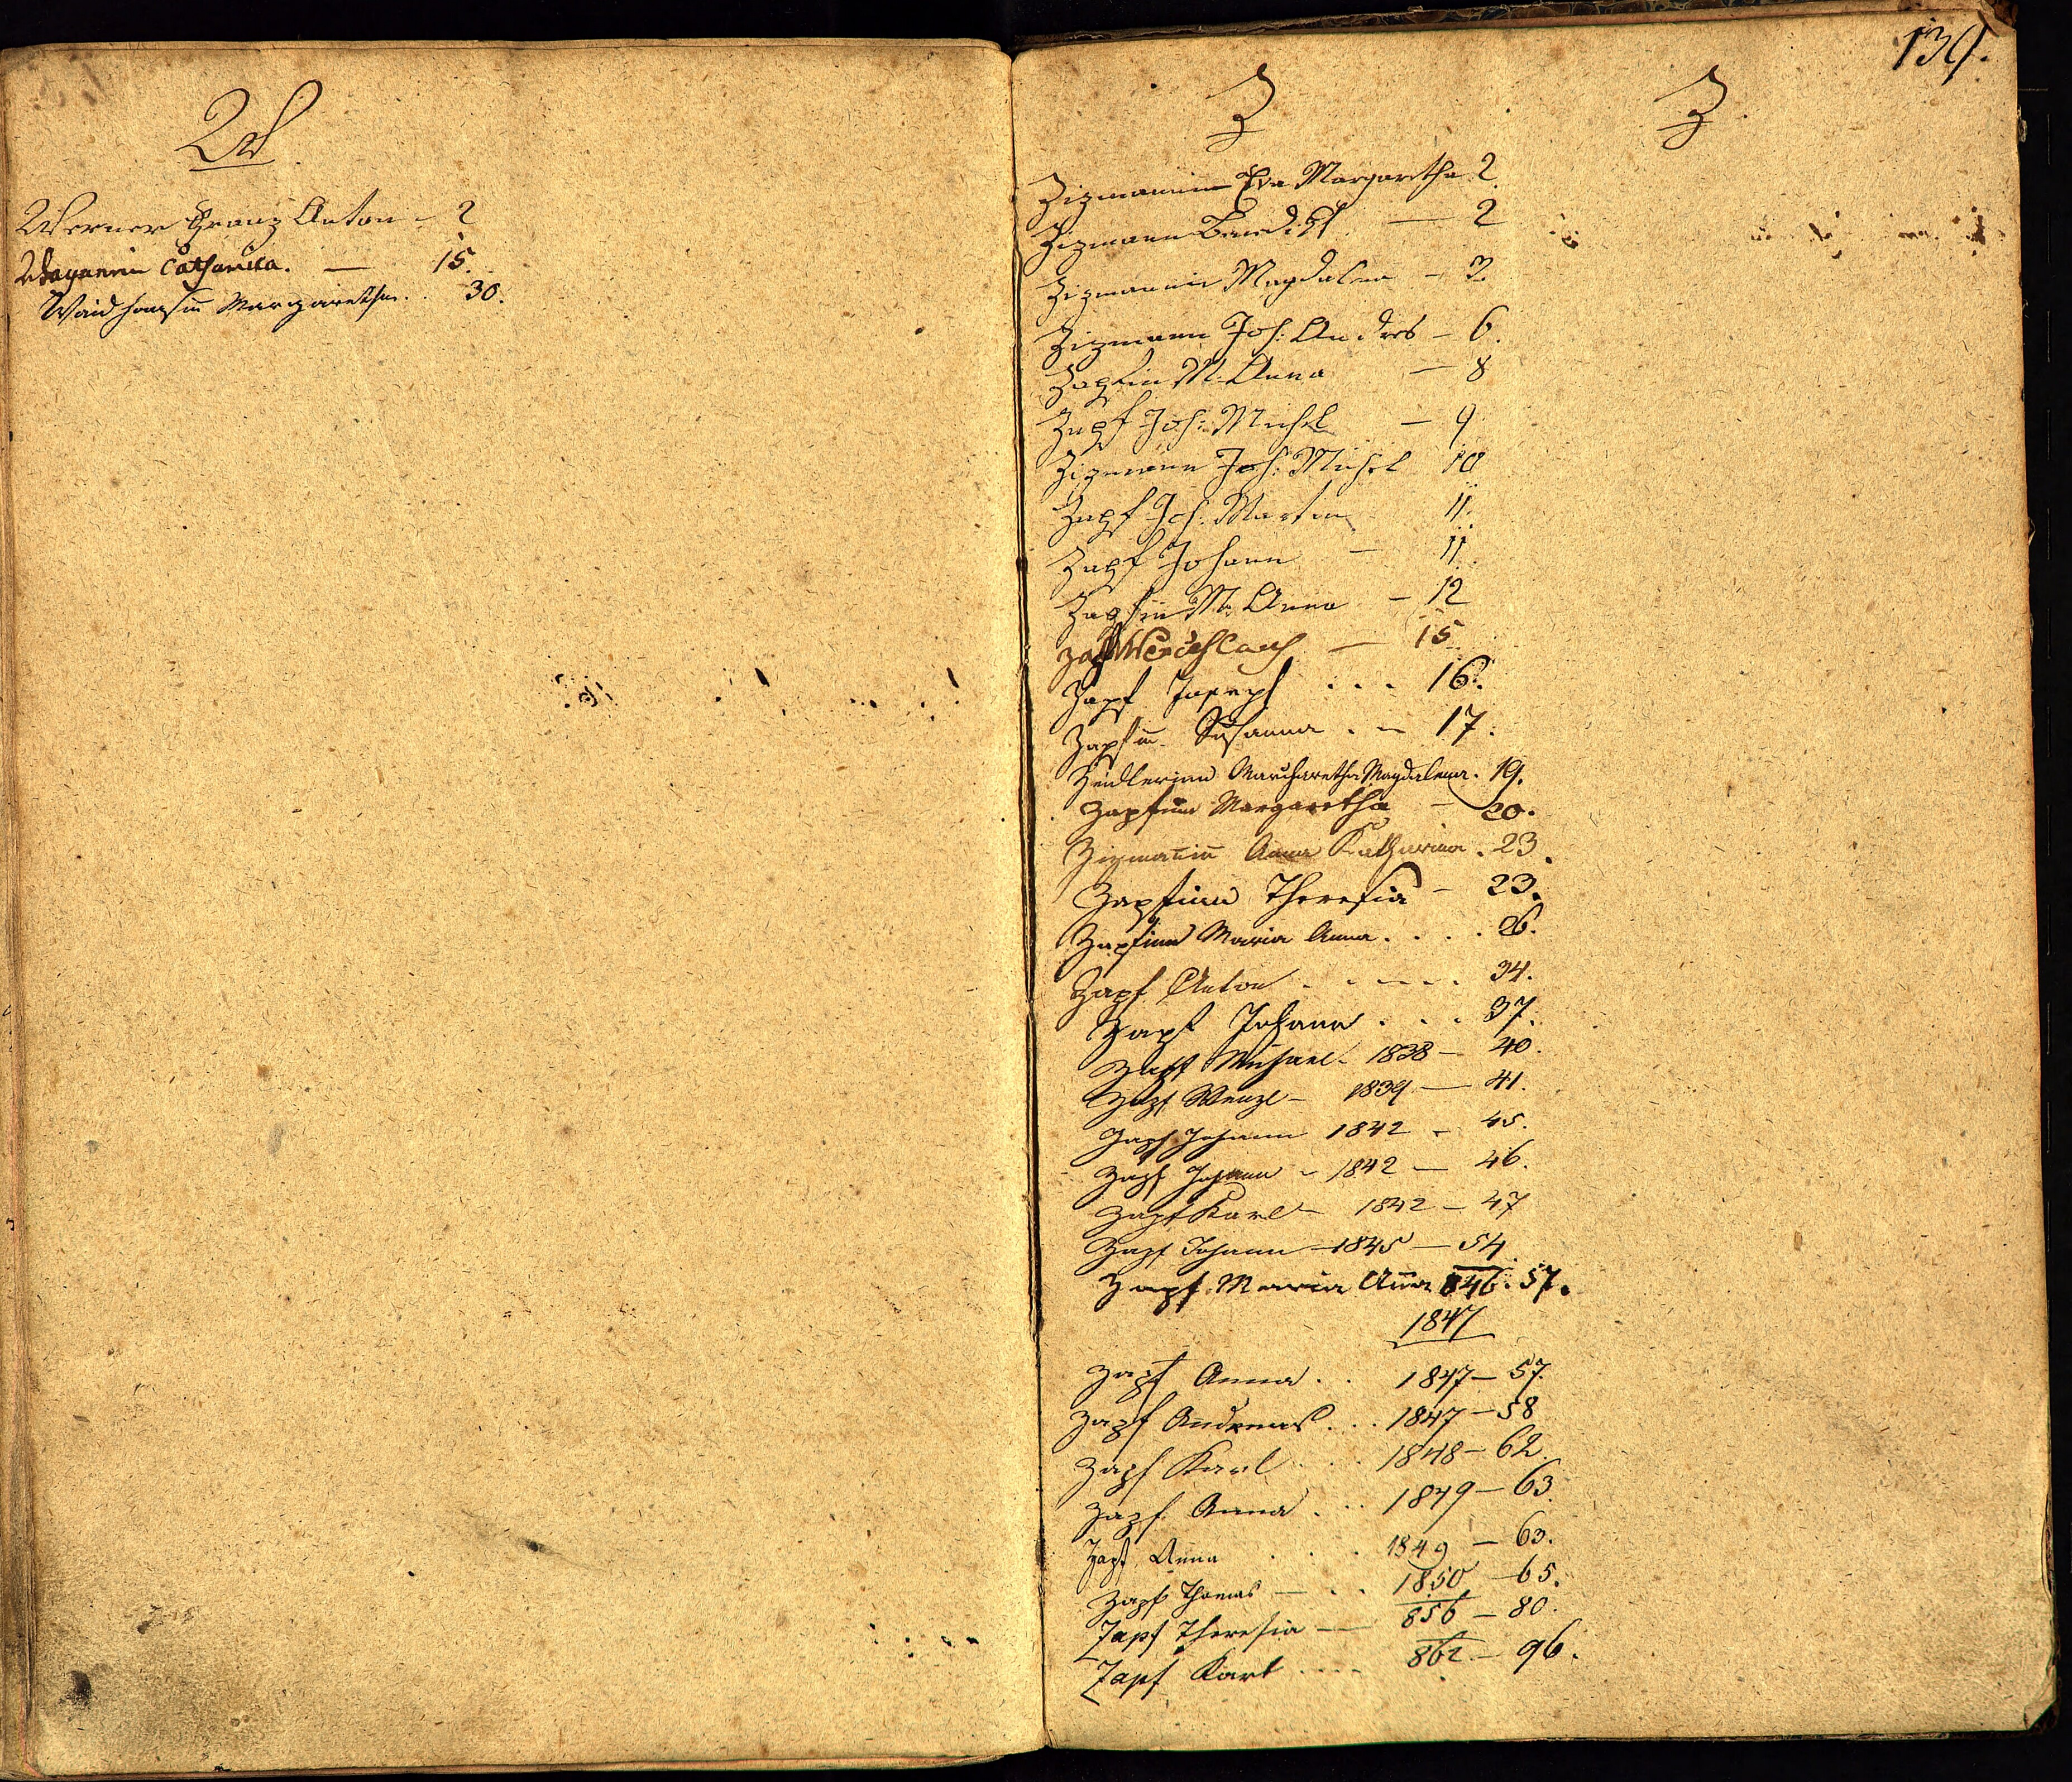 W
Werner Franz Anton - 2
Wagnerin Catharina. — 15.
Waidhansin Margaretha. . 30.
139.
Z Z
Zizmannin Eva Margaretha 2.
Zizmann Benedikt — 2
Zizmannin Magdalena - 3.
Zizmann Joh: Andres - 6.
Zapfin M. Anna — 8
Zapf Joh: Michel — 9
Zizmann Joh: Michel 10
Zapf Joh: Martin 11.
Zapf Johann — 11.
Zapfin M. Anna - 12
Zapf — 15
Zapf Joseph . . . 16.
Zapfin Susanna . - 17.
Zeidlerinn Marcharetha Magdalena. 19.
Zapfinn Margaretha - 20.
Zizmanin Anna Katharina. 23.
Zapfinn Theresia - 23.
Zapfinn Maria Anna. . . . 26.
Zapf Anton . . - - . 34.
Zapf Johann . . . 37.
Zapf Michael - 1838 - 40.
Zapf Wenzl - 1839 — 41.
Zapf Johann 1842 - 45.
Zapf Johann - 1842 — 46.
Zapf Karl - 1842 - 47
Zapf Johann - 1845 - 54
Zapf Maria Anna 846. 57.
1847
Zapf Anna . . 1847 - 57.
Zapf Andreas . . . 1847 - 58
Zapf Karl . . . 1848 - 62.
Zapf Anna . . . 1849 - 63.
Zapf Anna . . . 1849 - 63.
Zapf Thomas — . . 1850 - 65.
Zapf Theresia — 856 - 80.
Zapf Karl . . . . 862 - 96.